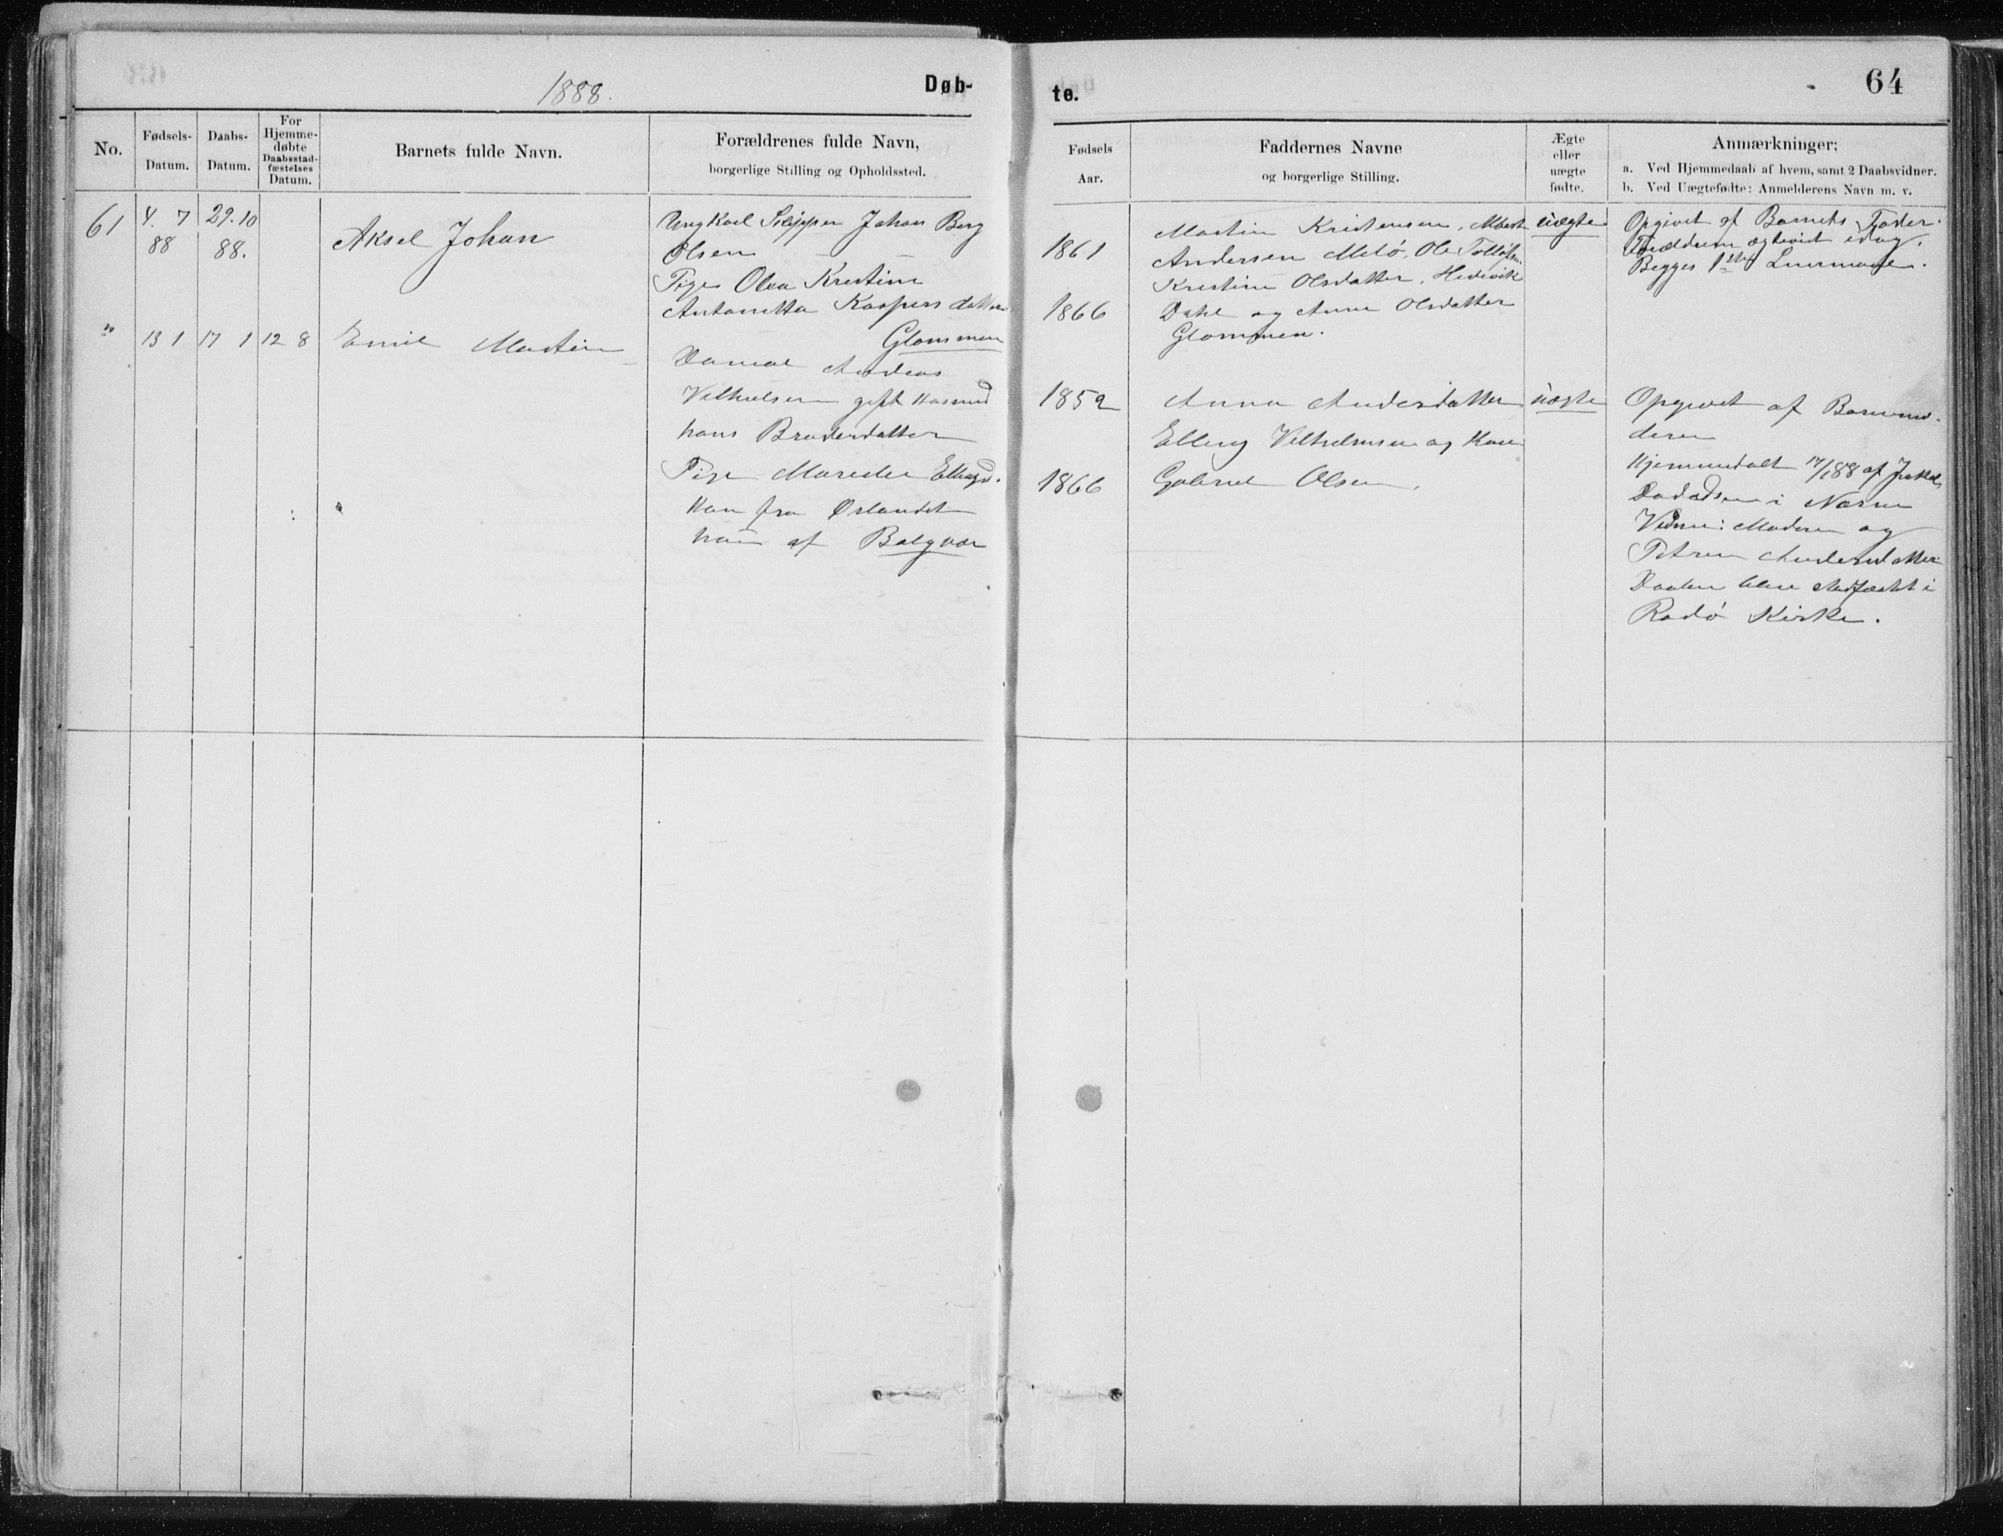 1888.
Døb-
No.
Fødsels-
Datum.
Daabs-
Datum.
For
Hjemme-
døbte
Daabsstad-
fæstelses
Datum.
Barnets fulde Navn.
Forældrenes fulde Navn,
borgerlige Stilling og Opholdssted.
61
4. 7
88
29.10
88.
Aksel Johan
Ungkarl Skipper Johan Berg
Olsen
Pige Olea Kristine
Antonetta Kaspersdatter
Glommen
"
13 1
17 1
12 8
Emil Martin
Daniel Andreas
gift
hans Broderdatter
Pige
fra Ørlandet
hun af
te.
64
Fødsels
Aar.
Faddernes Navne
og borgerlige Stilling.
Ægte
eller
uægte
fødte.
Anmærkninger;
a. Ved Hjemmedaab af hvem, samt 2 Daabsvidner.
b. Ved Uægtefødte: Anmelderens Navn m. v.
1861
1866
Martin Kristensen,
Andersen Melø, Ole
Kristine Olsdatter, Hedevik
Dahl og Anne Olsdatter
Glommen.
uægte
Opgivet af Barnets Fader.
Forældrene ægteviet idag.
Begges 1ste Leiermaal.
1852
1866
Anna Andersdatter
Ellerg Vilhelmsen og
Gabriel Olsen.
uægte
Opgivet af
Hjemmedøbt 17/1 88 af
i
Vidner: Moderen og
Petrine Andersdatter
Daaben blev stadfæstet i
Kirke.